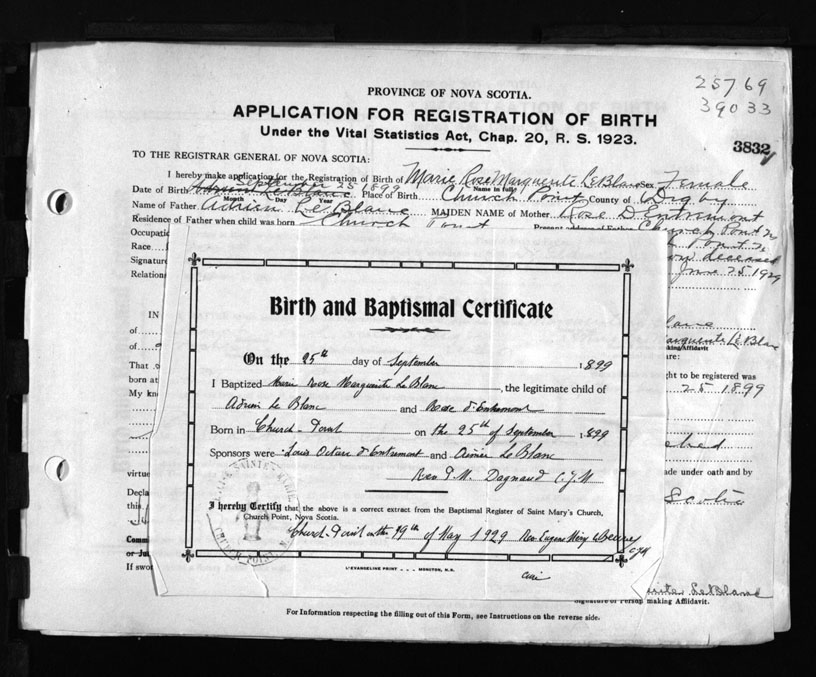 PROVINCE OF NOVA SCOTIA.
25769
39033
APPLICATION FOR REGISTRATION OF BIRTH
Under the Vital Statistics Act, Chap. 20, R. S. 1923.
3832
TO THE REGISTRAR GENERAL OF NOVA SCOTIA:
I hereby make application for the Registration of Birth of Marie Rose Marguerite LeBlanc Sex Female
Name in full
Date of Birth September 25 1899 Place of Birth Church Point County of Digby
Month Day Year
Name of Father Adrien LeBlanc MAIDEN NAME of Mother Rose D'Entremont
Residence of Father when child was born Church Point Present address of Father Church Point
Occupatio
Race
Signature deceased
Relation June 25 1929
IN
of
of Marguerite LeBlanc
making Affidavit
are:
That
ght to be registered was
born at 25 1899
My kno
virtue
ade under oath and by
Decla
this Scotia
Comm
or Ju
If swor
Birth and Baptismal Certificate
On the 25th day of September 1899
I Baptized Marie Rose Marguerite Le Blanc, the legitimate child of
Adrien Le Blanc and Rose d'Entremont
Born in Church-Point on the 25th of September 1899
Sponsors were Louis Octave d'Entremont and Aimée Le Blanc
Rev P. M. Dagnaud C.J.M
I hereby Certify that the above is a correct extract from the Baptismal Register of Saint Mary's Church,
Church Point, Nova Scotia.
Church-Point on the 19th of May 1929 Rev Eugene Mary
cjm
L'EVANGELINE PRINT - - - MONCTON, N.B.
LeBlanc
Signature of Person making Affidavit.
For Information respecting the filling out of this Form, see Instructions on the reverse side.